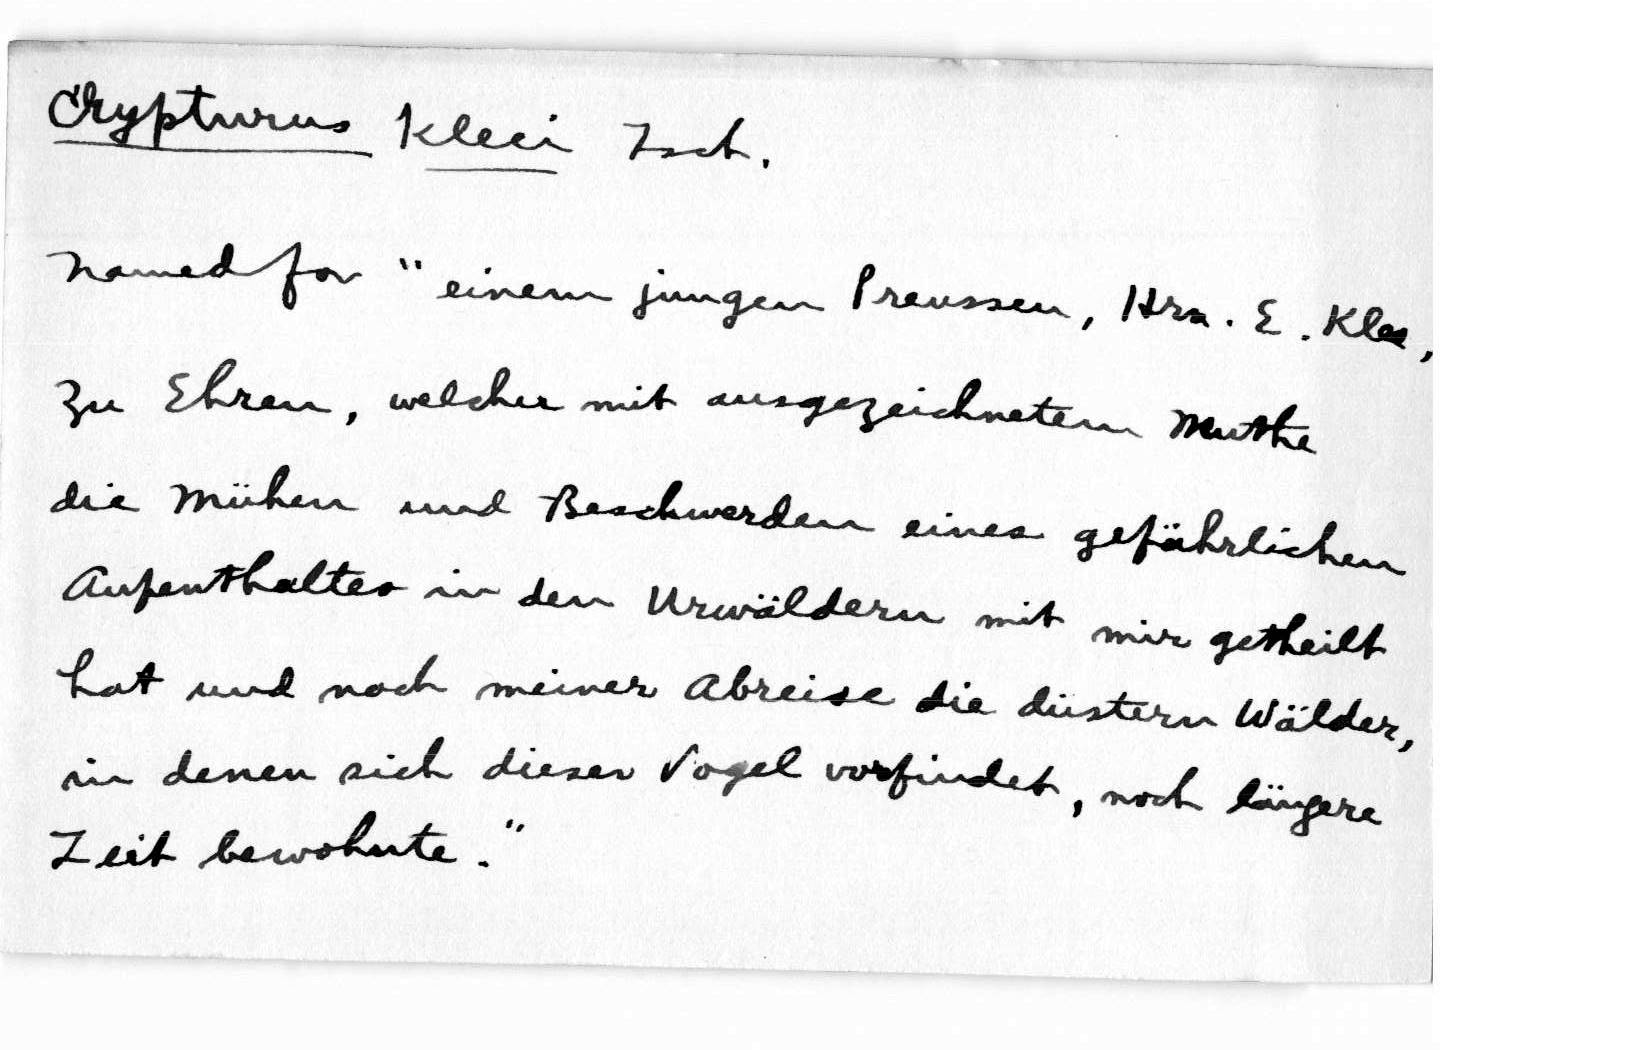 Crypturus Kleei Tsch.
Named for "einem jungen Preussen, Hrn. E. Klee,
zu Ehren, welcher mit ausgezeichnetem Muthe
die Mühen und Beschwerden eines gefährlichen
Aufenthaltes in den Urwäldern mit mir getheilt
hat und nach meiner Abreise die düstern Wälder,
in denen sich dieser Vogel vorfindet, noch längere
Zeit bewohnte."